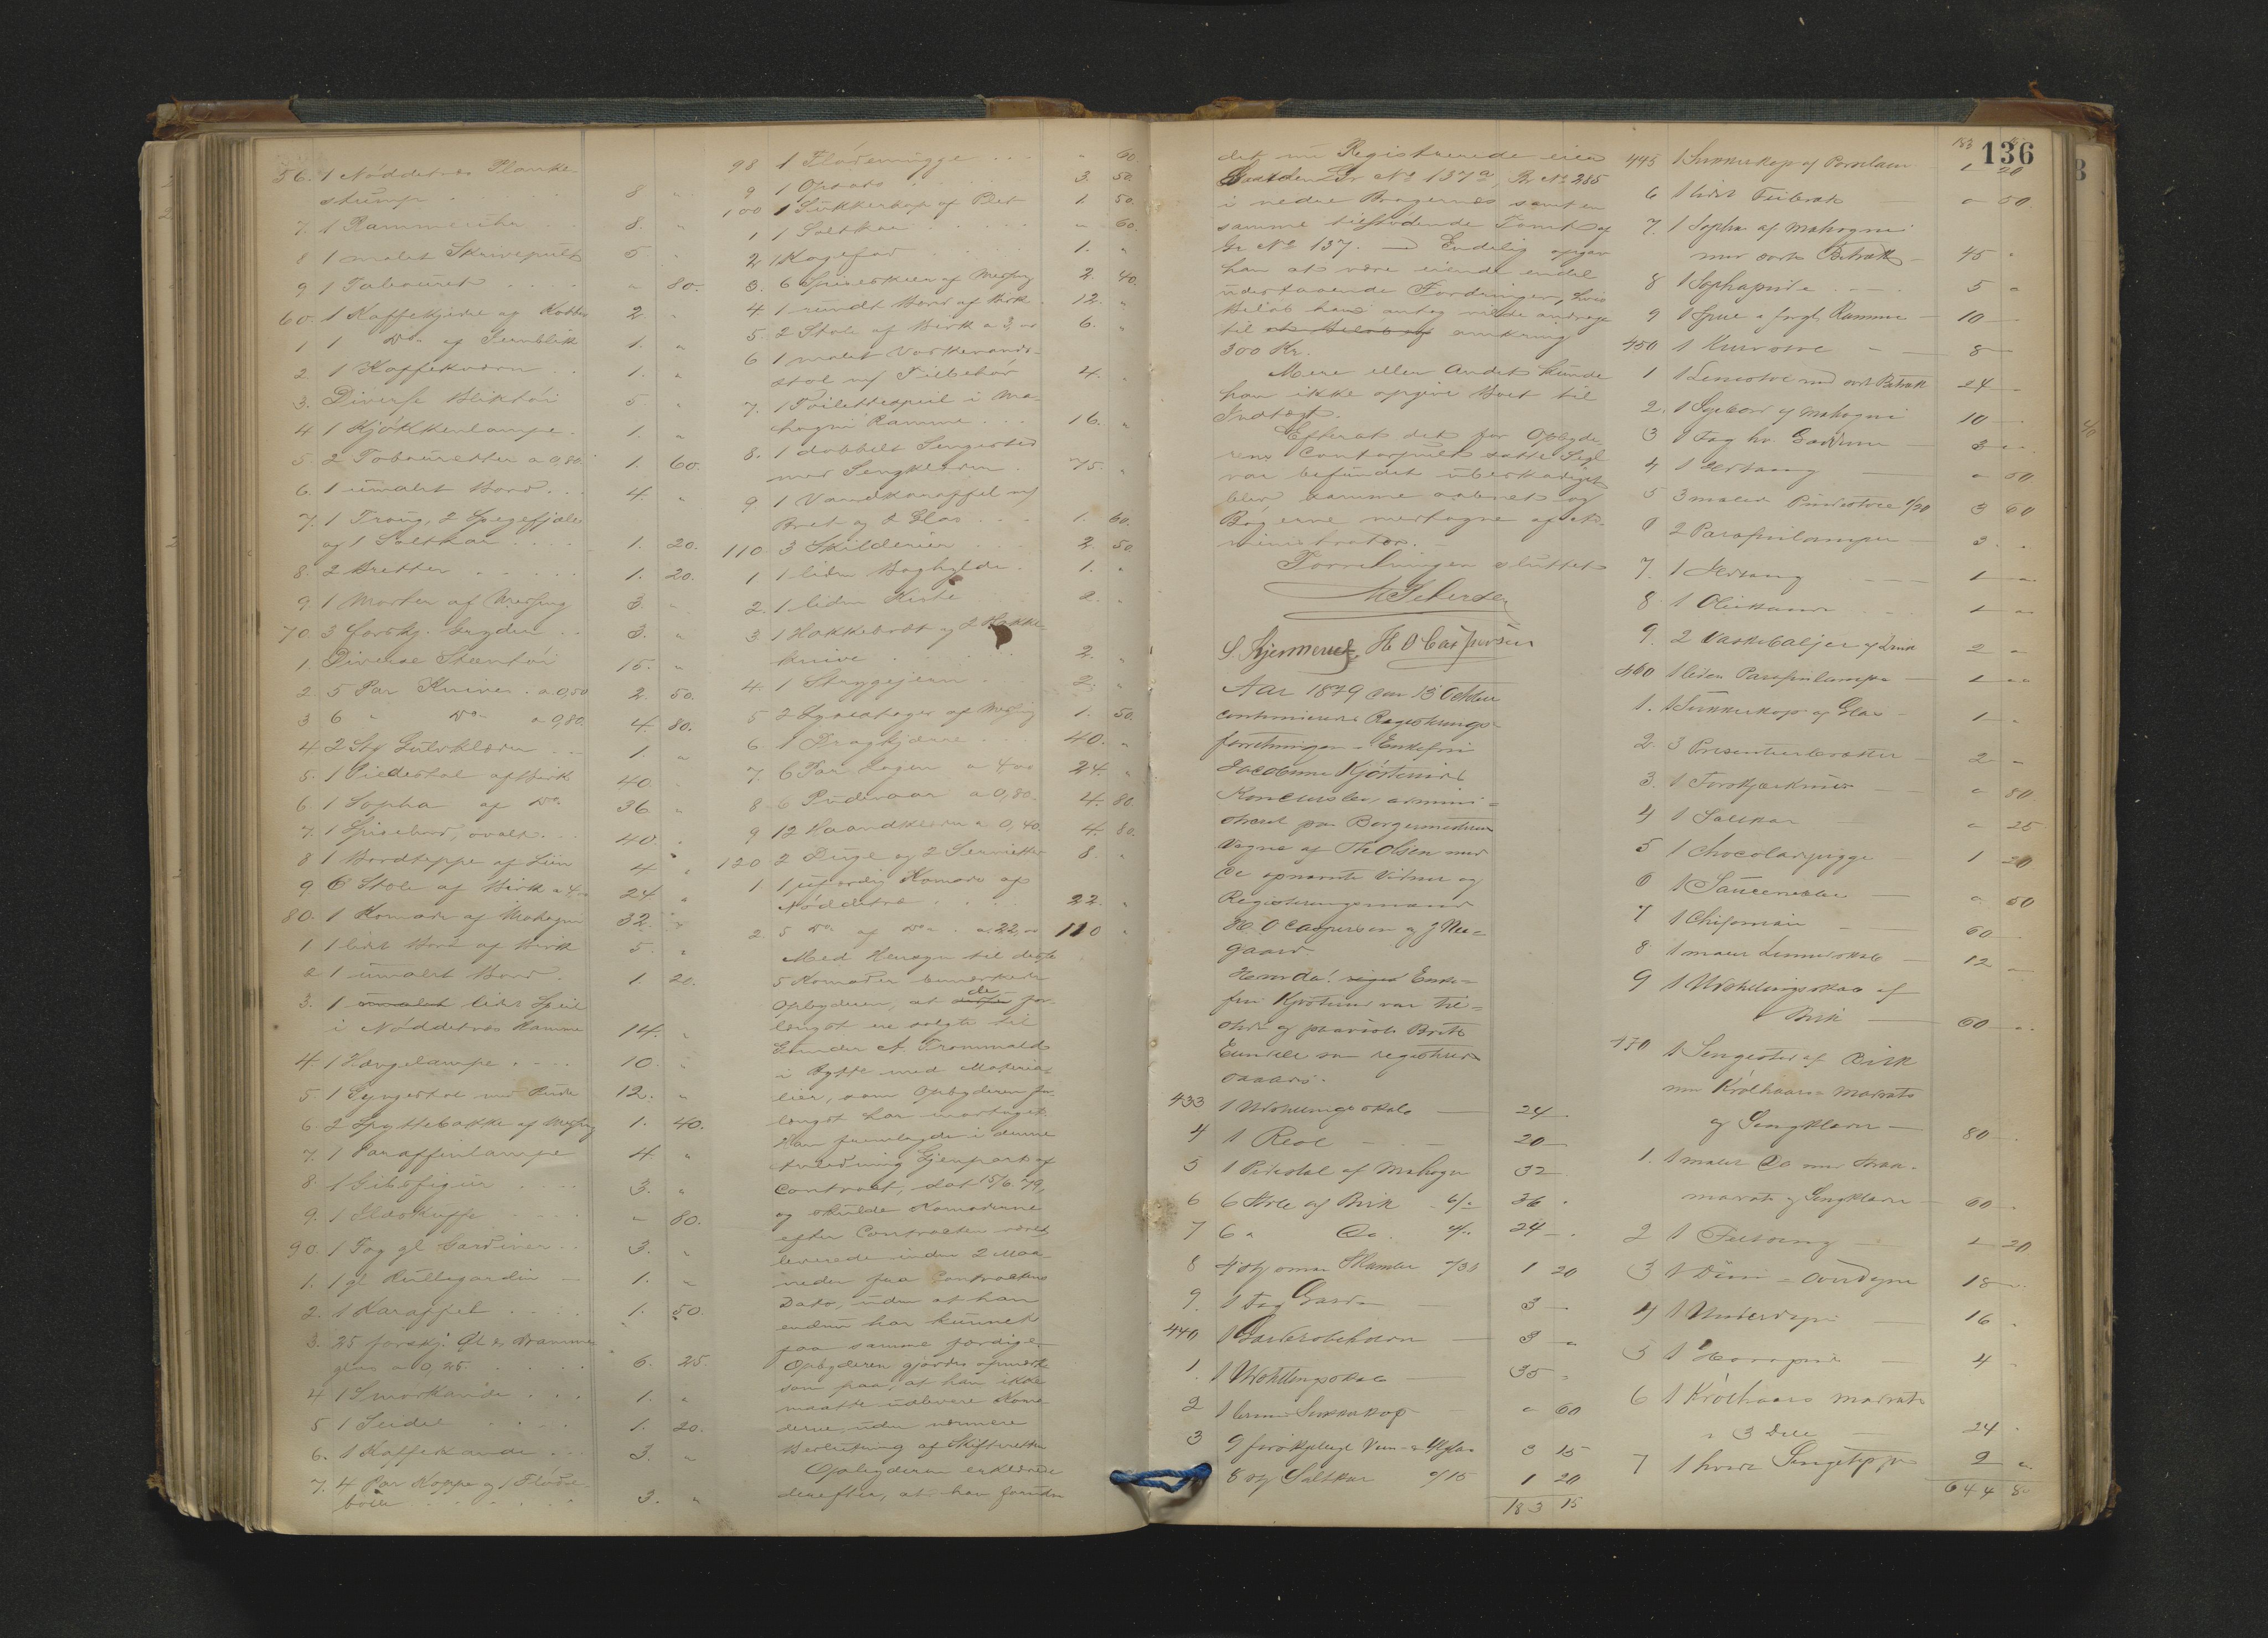 56. 1 Nøddetræs Planke
stump . . . . 8 "
7. 1 . . 8. "
8 1 malet Skrivepult 5 "
9 1 Tabouret . . . . " 80.
60. 1 Kaffekjedel af Kobber 2. "
1 1 Do. af Jernblik 1. "
2. 1 Kaffekværn . . 1. "
3. Diverse Bliktøi 5. "
4 1 Kjøkkenlampe. 1. "
5. 2 Tabouretter a 0,80. 1. 60.
6. 1 umalet Bord . . 4. "
7. 1 Traug, 2 Spegefjæle
og 1 Saltkar . . . . 1. 20.
8. 2 Bretter . . . . . 1. 20.
9 1 Morter af Messing 3. "
70. 3 forskj. Gryder . . 3. "
1. Diverse Steentøi 15. "
2. 5 Par Knive . a 0,50 2. 50.
3 6 " Do. a 0,80. 4. 80.
4. 2 Stk Gulvklæder . . 1 "
5. 1 Piedestal af Birk 40 "
6. 1 Sopha af Do. 36 "
7. 1 Spisebord, ovalt. . . 40. "
8 1 Bordteppe af Liin 4 "
9 6 Stole af Birk a 4,00 24 "
80. 1 Komode af Mahogni 32. "
1 1 lidet Bord af Birk 5. "
2 1 umalet Bord. 1. 20.
3. 1 lidet Speil
i Nøddetræs Ramme 14. "
4. 1 Hængelampe . . . 10. "
5. 1 Gyngestol med Pude 12. "
6. 2 Spyttebakke af Messing 1. 40.
7. 1 Paraffinlampe 4. "
8. 1 Gibsfigur . . . . 3. "
9. 1 Glaskuppe . . . . " 80.
90. 1 Fag gl Gardiner . . 3. "
1. 1 gl Rullegardin — 1. "
2. 1 Karaffel . . . . 1. 50.
3. 25 forskj. Øl & Dramme
glas a 0,25. . . . . . 6. 25
4 1 Smørkande . . . 1. "
5 1 Seidel . . . . 1. 20.
6. 1 Kaffekande . . . 3. "
7. 4 Par Kopper og 1 Fløde
bolle . . . . . . . 3. "
98 1 Flødemugge . . . " 60.
9 1 Opsats . . . . . 3. 50.
100 1 Sukkerkop af Plet 1. 50.
1 1 Saltkar . . . . . " 60.
2 1 Kagefad . . . . 1. "
3. 6 Spiseskeer af Messing 2. 40.
4 1 rundt Bord af Birk . 12. "
5. 2 Stole af Birk a 3,00 6. "
6 1 malet Vaskevands-
stol m/ Tilbehør 4. "
7. 1 Toiletspeil i Ma-
hogni Ramme . . . 16. "
8. 1 dobbelt Sengested
med Sengklæder . 75. "
9 1 Vandkaraffel m/
Bret og 2 Glas . . . 1. 60.
110 3 Skilderier . . . . 2. 50.
1 1 liden Boghylde . 1. "
2. 1 liden Kiste . . . 2. "
3. 1 Hakkebræt og 2 Hakke-
knive . . . . . . 2. "
4. 1 Strygejern . . . 2. "
5 2 Lysestager af Messing 1. 50.
6. 1 Dragkjærre . . . 40. "
7. 6 Par Lagen a 4,00 24. "
8 6 Pudevaar a 0,80. 4. 80.
9 12 Haandklæder a 0,40. 4. 80.
120 2 Duge og 2 Servietter 8. "
1 1 ufærdig Komode af
Nøddetræ . . . . . 22. "
2. 5 Do. af Do. a 22,00 110 "
Med Hensyn til disse
5 Komoder bemærkede
Opbyderen, at de for-
længst ere solgte til
Gunder A. Trommald
i Bytte med Materia-
lier, som Opbyderen for-
længst har modtaget.
Han fremlagde i denne
Anledning Gjenpart af
Contract, dat 15/6 79,
og skulde Komoderne
efter Contracten været
leverede inden 2 Maa-
neder fra Contractens
Dato, uden at han
endnu har kunnet
faa samme færdige.
Opbyderen gjordes opmærk-
som paa, at han ikke
maatte udlevere Komo-
derne, uden nærmere
Beslutning af Skifteretten
Opbyderen erklærede
derefter, at han foruden
det nu Registrerede eier
Gaarden Gr No 137a, Br No 285
i nedre Bragernes samt en
samme tilstødende Tomt af
Gr No 137. — Endelig opgav
han at være eiende endel
udestaaende Fordringer, hvis
Beløb han antog vilde andrage
til omkring
300 Kr.
Mere eller Andet kunde
han ikke opgive Boet til
Indtægt.
Efterat det for Opbyde-
rens Contorpult satte Segl
var befundet ubeskadiget
blev samme aabnet og
Bøgerne medtagne af Ad-
ministrator. —
Forretningen sluttet

H O Caspersen
Aar 1879 den 13 October
continueredes Registrerings-
forretningen i Enkefru
Jacobine Kjøsterud
Konkursbo, admini-
streret paa Borgermesterens
Vegne af Th Olsen med
de opnævnte Vidner og
Registreringsmænd
H. O Caspersen og J Nee-
gaard.
Hvorda! Enke-
fru Kjøsterud var til-
stede og paaviste Boets
Eiendele som registreredes
saaledes.
433 1 Udstillingsskab — 24 "
4 1 Reol — . — 20 —
5 1 Pidestal af Mahogni 32
6 6 Stole af Birk 6/- 36 "
7 6 " Do. 4/- 24 — "
8 4 Stk /30 1 20
9. 1 Fag Gardiner — 3 —
440 1 Garderobeholder — 3 "
1. 1 Udstillingsskab — 35 "
2 1 Sukkerkop — " 60
3 9 forskjellige Viin & Ølglas 3 15
8 Stk Saltkar a/15 1 20
183 15
136
183 15
445 1 Sukkerkop af Porselain 1 20
6 1 lidet Feiebræt — " 50.
7. 1 Sopha af Mahogni
med sort Betræk — 45 "
8 1 Sophapude . . — . 5 "
9 1 Speil i forgl. Ramme — 10 —
450 1 Kurvstol — — 8 —
1 1 Lænestol med sort Betræk 24 — "
2. 1 Sybord af Mahogni 10 — .
3 1 Fag hv. Gardiner — 3 "
4 1 — " 50
5 3 malede Pindestole 1/20 3 60
6 2 Parafinlamper — 3 . "
7. 1 — — — 1 — "
8. 1 Oliekande 1 — "
9. 2 Vaskebaljer af 2 "
460 1 liden Parafinlampe — 1 — "
1. 1 Sukkerkop af Glas — 1 — "
2. 3 Presenteerbretter — 2 —
3. 1 Forskjærkniv — " 80.
4 1 Saltkar — " 25
5 1 Chocoladmugge — 1 20
6 1 Sauceskaal — " 50
7 1 Chifoniere — 60 —
8 1 malet Linnedskab — 12 —
9 1 Udstillingsskab af
Birk — 60 — "
470 1 Sengested af Birk
med Krølhaars-madrats
og Sengklæder — 80 — .
1. 1 malet Do med
madrats og Sengklæder — 60 — .
2 1 — 1 20
3 1 Duun-Overdyne 18 — .
4 1 Underdyne — 16 .
5 1 — 4 "
6 1 Krølhaars madrats
i 3 Dele — 24 "
7 1 hvidt Sengeteppe 2 "
644 80